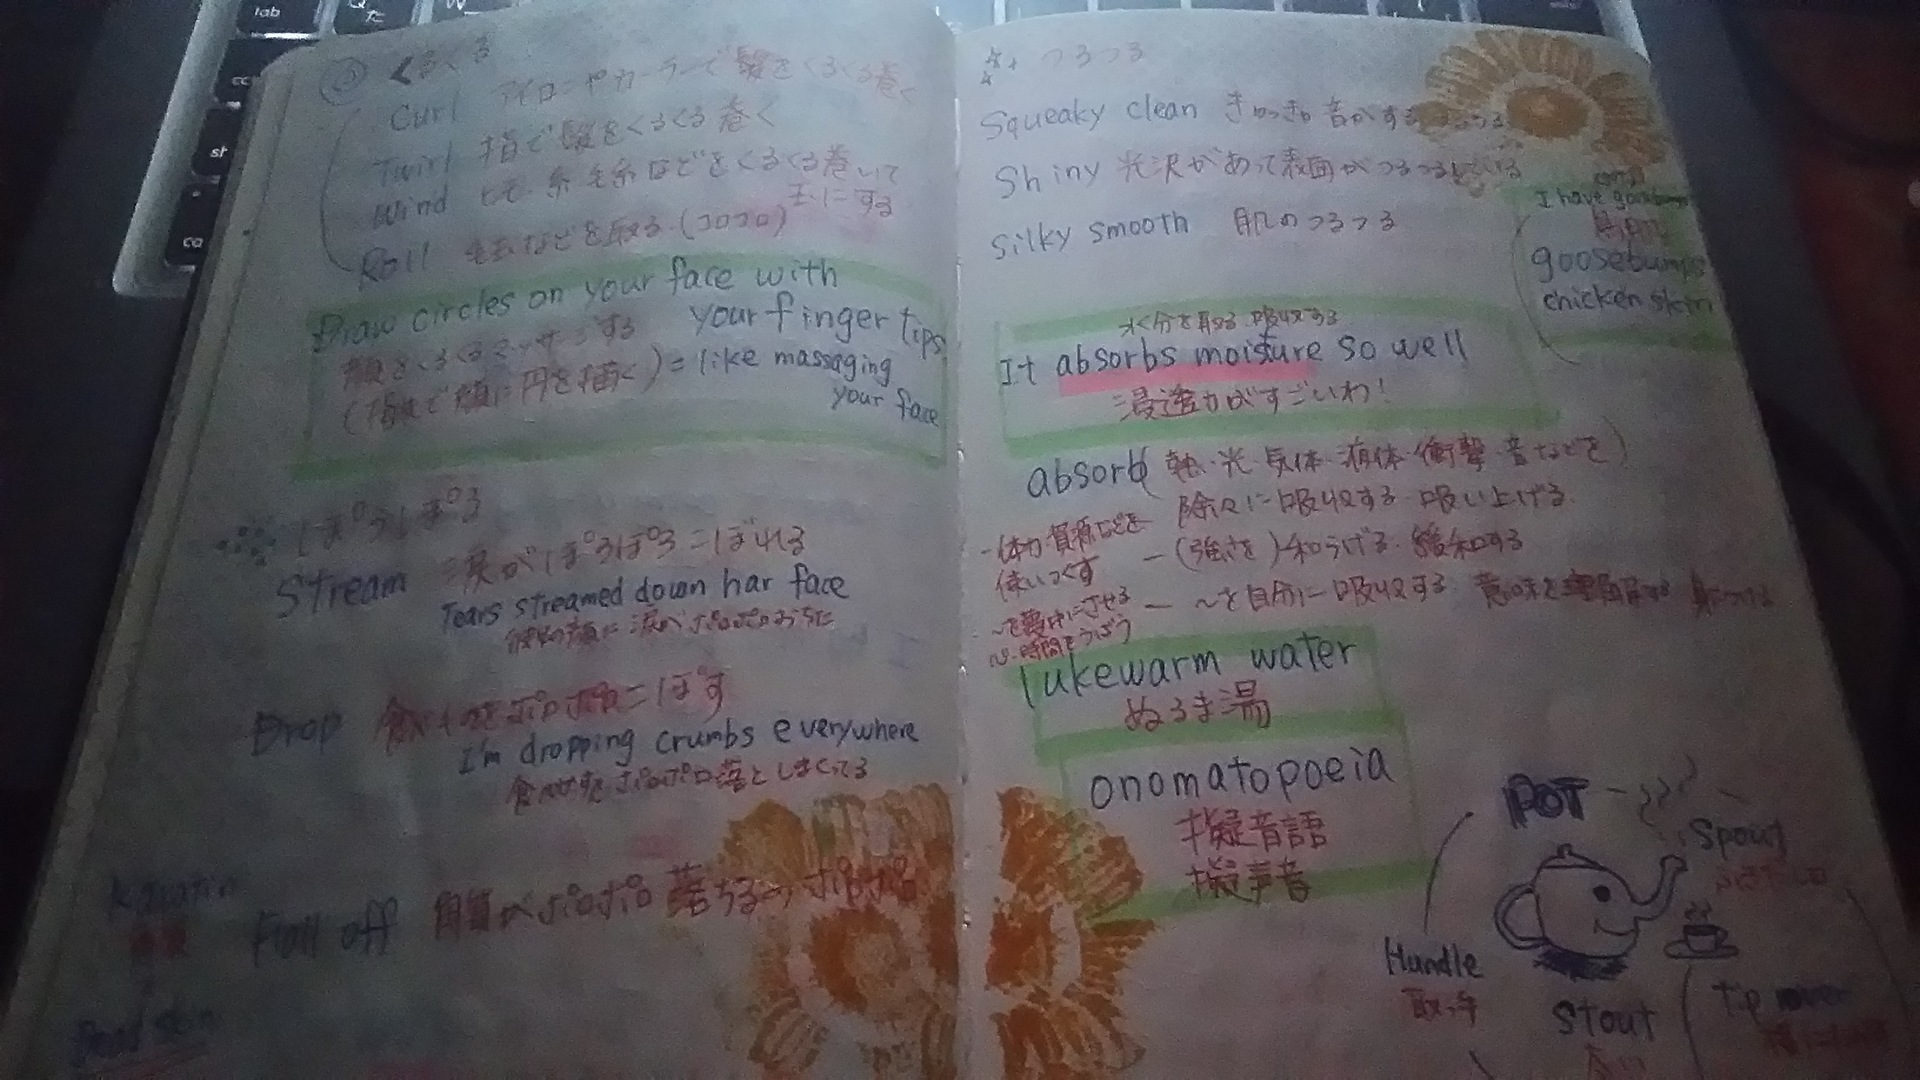 くるくる
Curl アイロンやカーラーで髪をくるくる巻く
Twirl 指で髪をくるくる巻く
Wind ヒモ 糸 毛糸などをくるくる巻いて
玉にする
Roll などを取る (コロコロ)
Draw circles on your face with
your finger tips
顔をくるくるマッサージする
(指先で顔に円を描く) = like massaging
your face
ぽろぽろ
Stream 涙がぽろぽろ=こぼれる
Tears streamed down har face
彼女の顔に涙がポロポロおちた
Drop 食べものをポロポロ=こぼす
I'm dropping crumbs everywhere
食べカスをポロポロ落としまくってる
Keratin
角質
Fall off 角質がポロポロ落ちる
Dead skin
つるつる
Squeaky clean きゅっきゅ音がするつるつる
Shiny 光沢があって表面がつるつるしている
Silky smooth 肌のつるつる
I have goosebumps
鳥肌
goosebumps
chicken skin
水分を取る 吸収する
It absorbs moisture so well
浸透力がすごいわ!
absorb (熱・光・気体・液体・衝撃・音などを)
除々に吸収する 吸い上げる
-体力 資源などを
使いつくす
- (強さを)和らげる 緩和する
- ~を自分に吸収する 意味を理解する 身につける
~を夢中にさせる
時間をうばう
lukewarm water
ぬるま湯
onomatopoeia
擬音語
擬声音
POT
Spout
Handle
取っ手
Stout
Tip over
tab
た